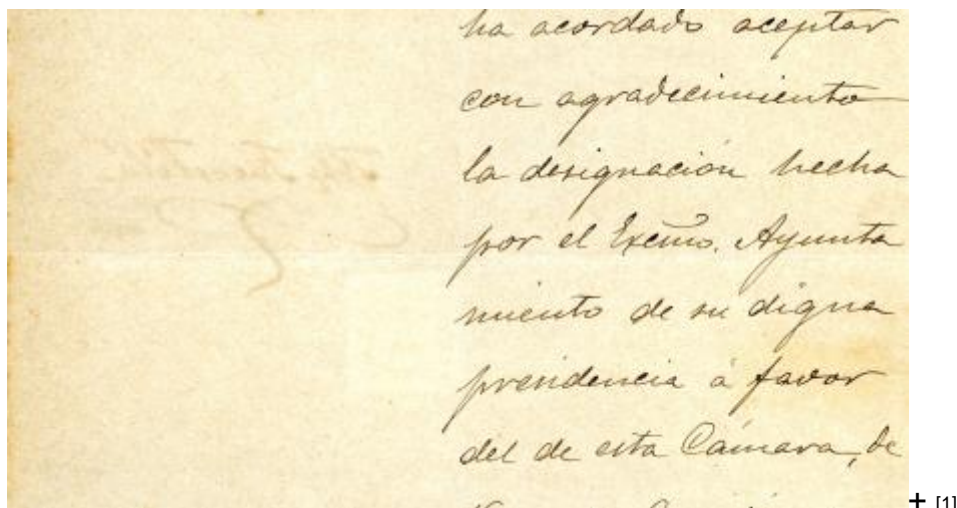 ha acordado aceptar
con agradecimiento
la designación hecha
por el Excmo. Ayunta
miento de su digna
presidencia á favor
del de esta Cámara, de
+ [1]